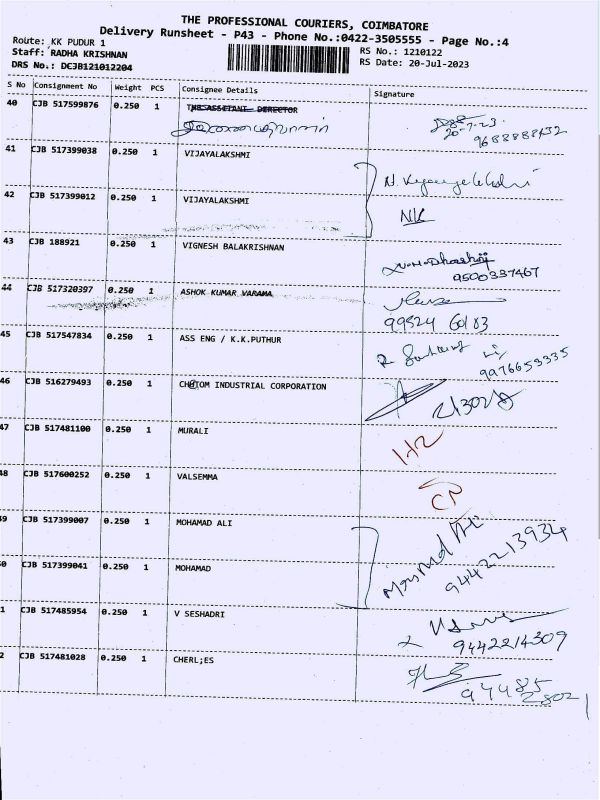 THE PROFESSIONAL COURIERS, COIMBATORE
Delivery Runsheet - P43 - Phone No.:0422-3505555 - Page No.:4
Route: KK PUDUR 1
Staff: RADHA KRISHNAN
RS No.: 1210122
DRS No.: DCJB121012204
RS Date: 20-Jul-2023
S No Consignment No Weight PCS Consignee Details Signature
40 CJB 517599876 0.250 1 DIRECTOR
20-7-23
41 CJB 517399038 0.250 1 VIJAYALAKSHMI
42 CJB 517399012 0.250 1 VIJAYALAKSHMI
43 CJB 188921 0.250 1 VIGNESH BALAKRISHNAN
9500337467
44 CJB 517320397 0.250 1 ASHOK KUMAR VARAMA
99524 60183
45 CJB 517547834 0.250 1 ASS ENG / K.K.PUTHUR
9976653335
46 CJB 516279493 0.250 1 INDUSTRIAL CORPORATION
47 CJB 517481100 0.250 1 MURALI
48 CJB 517600252 0.250 1 VALSEMMA
49 CJB 517399007 0.250 1 MOHAMAD ALI
9442213934
0 CJB 517399041 0.250 1 MOHAMAD
1 CJB 517485954 0.250 1 V SESHADRI
9442214309
2 CJB 517481028 0.250 1 CHERL;ES
97485
28021